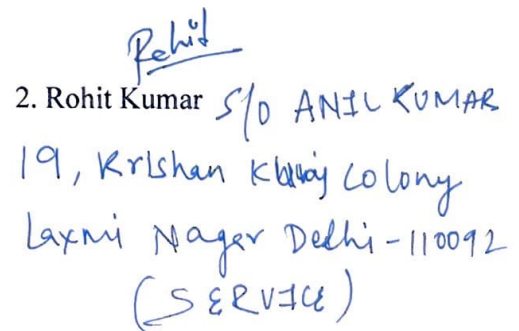 Rohit
2. Rohit Kumar S/O ANIL KUMAR
19, Krishan colony
Laxmi Nagar Delhi - 110092
(SERVICE)